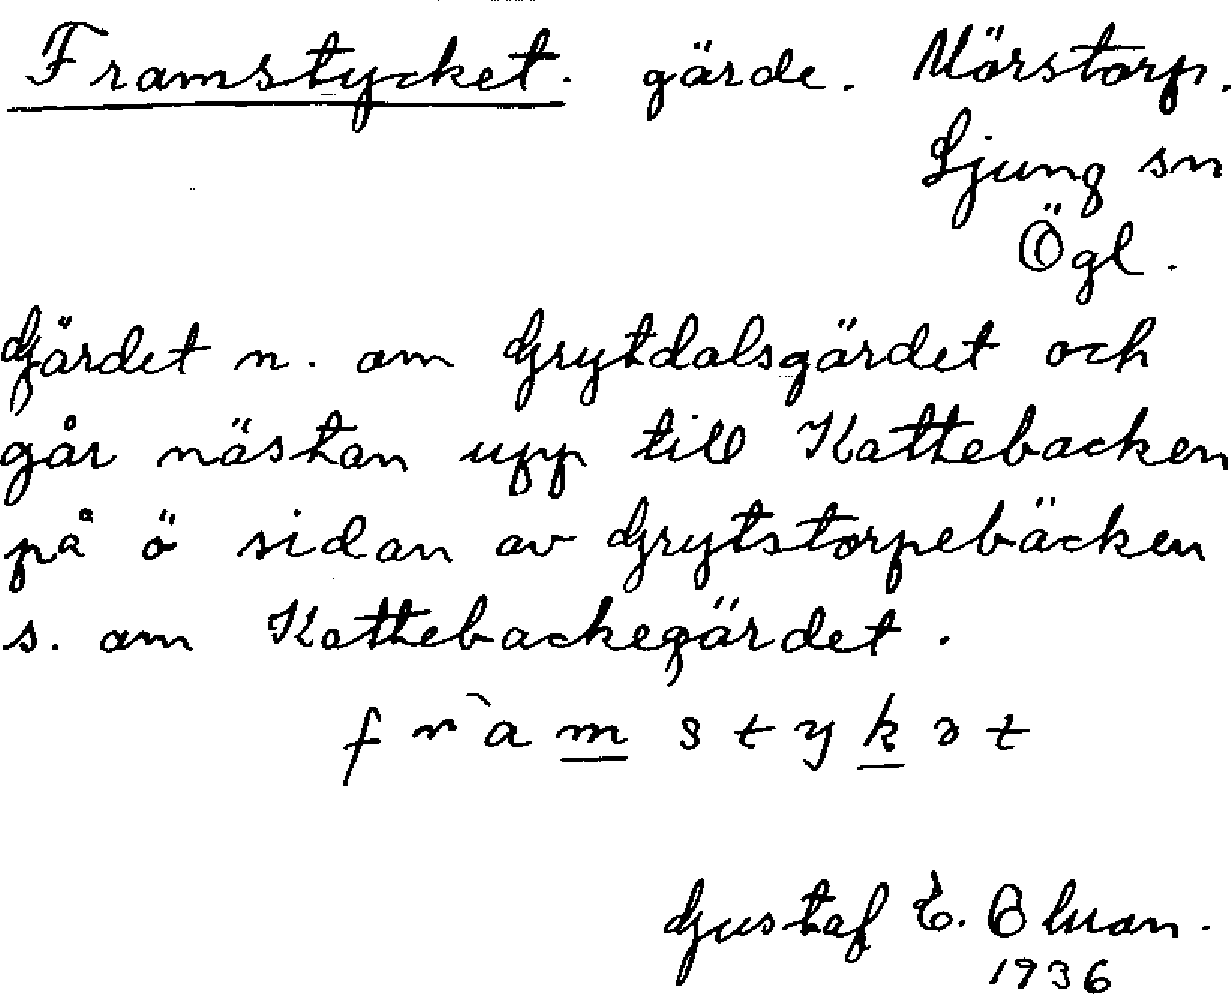 Framstycket. gärde. Mörstorp.
Ljung sn
Ögl.
Gärdet n. om Grytdalsgärdet och
går nästan upp till Kattebacken
på ö sidan av Grytstorpebäcken
s. om Kattebackegärdet.
fr`amstykət
Gustaf E.
1936